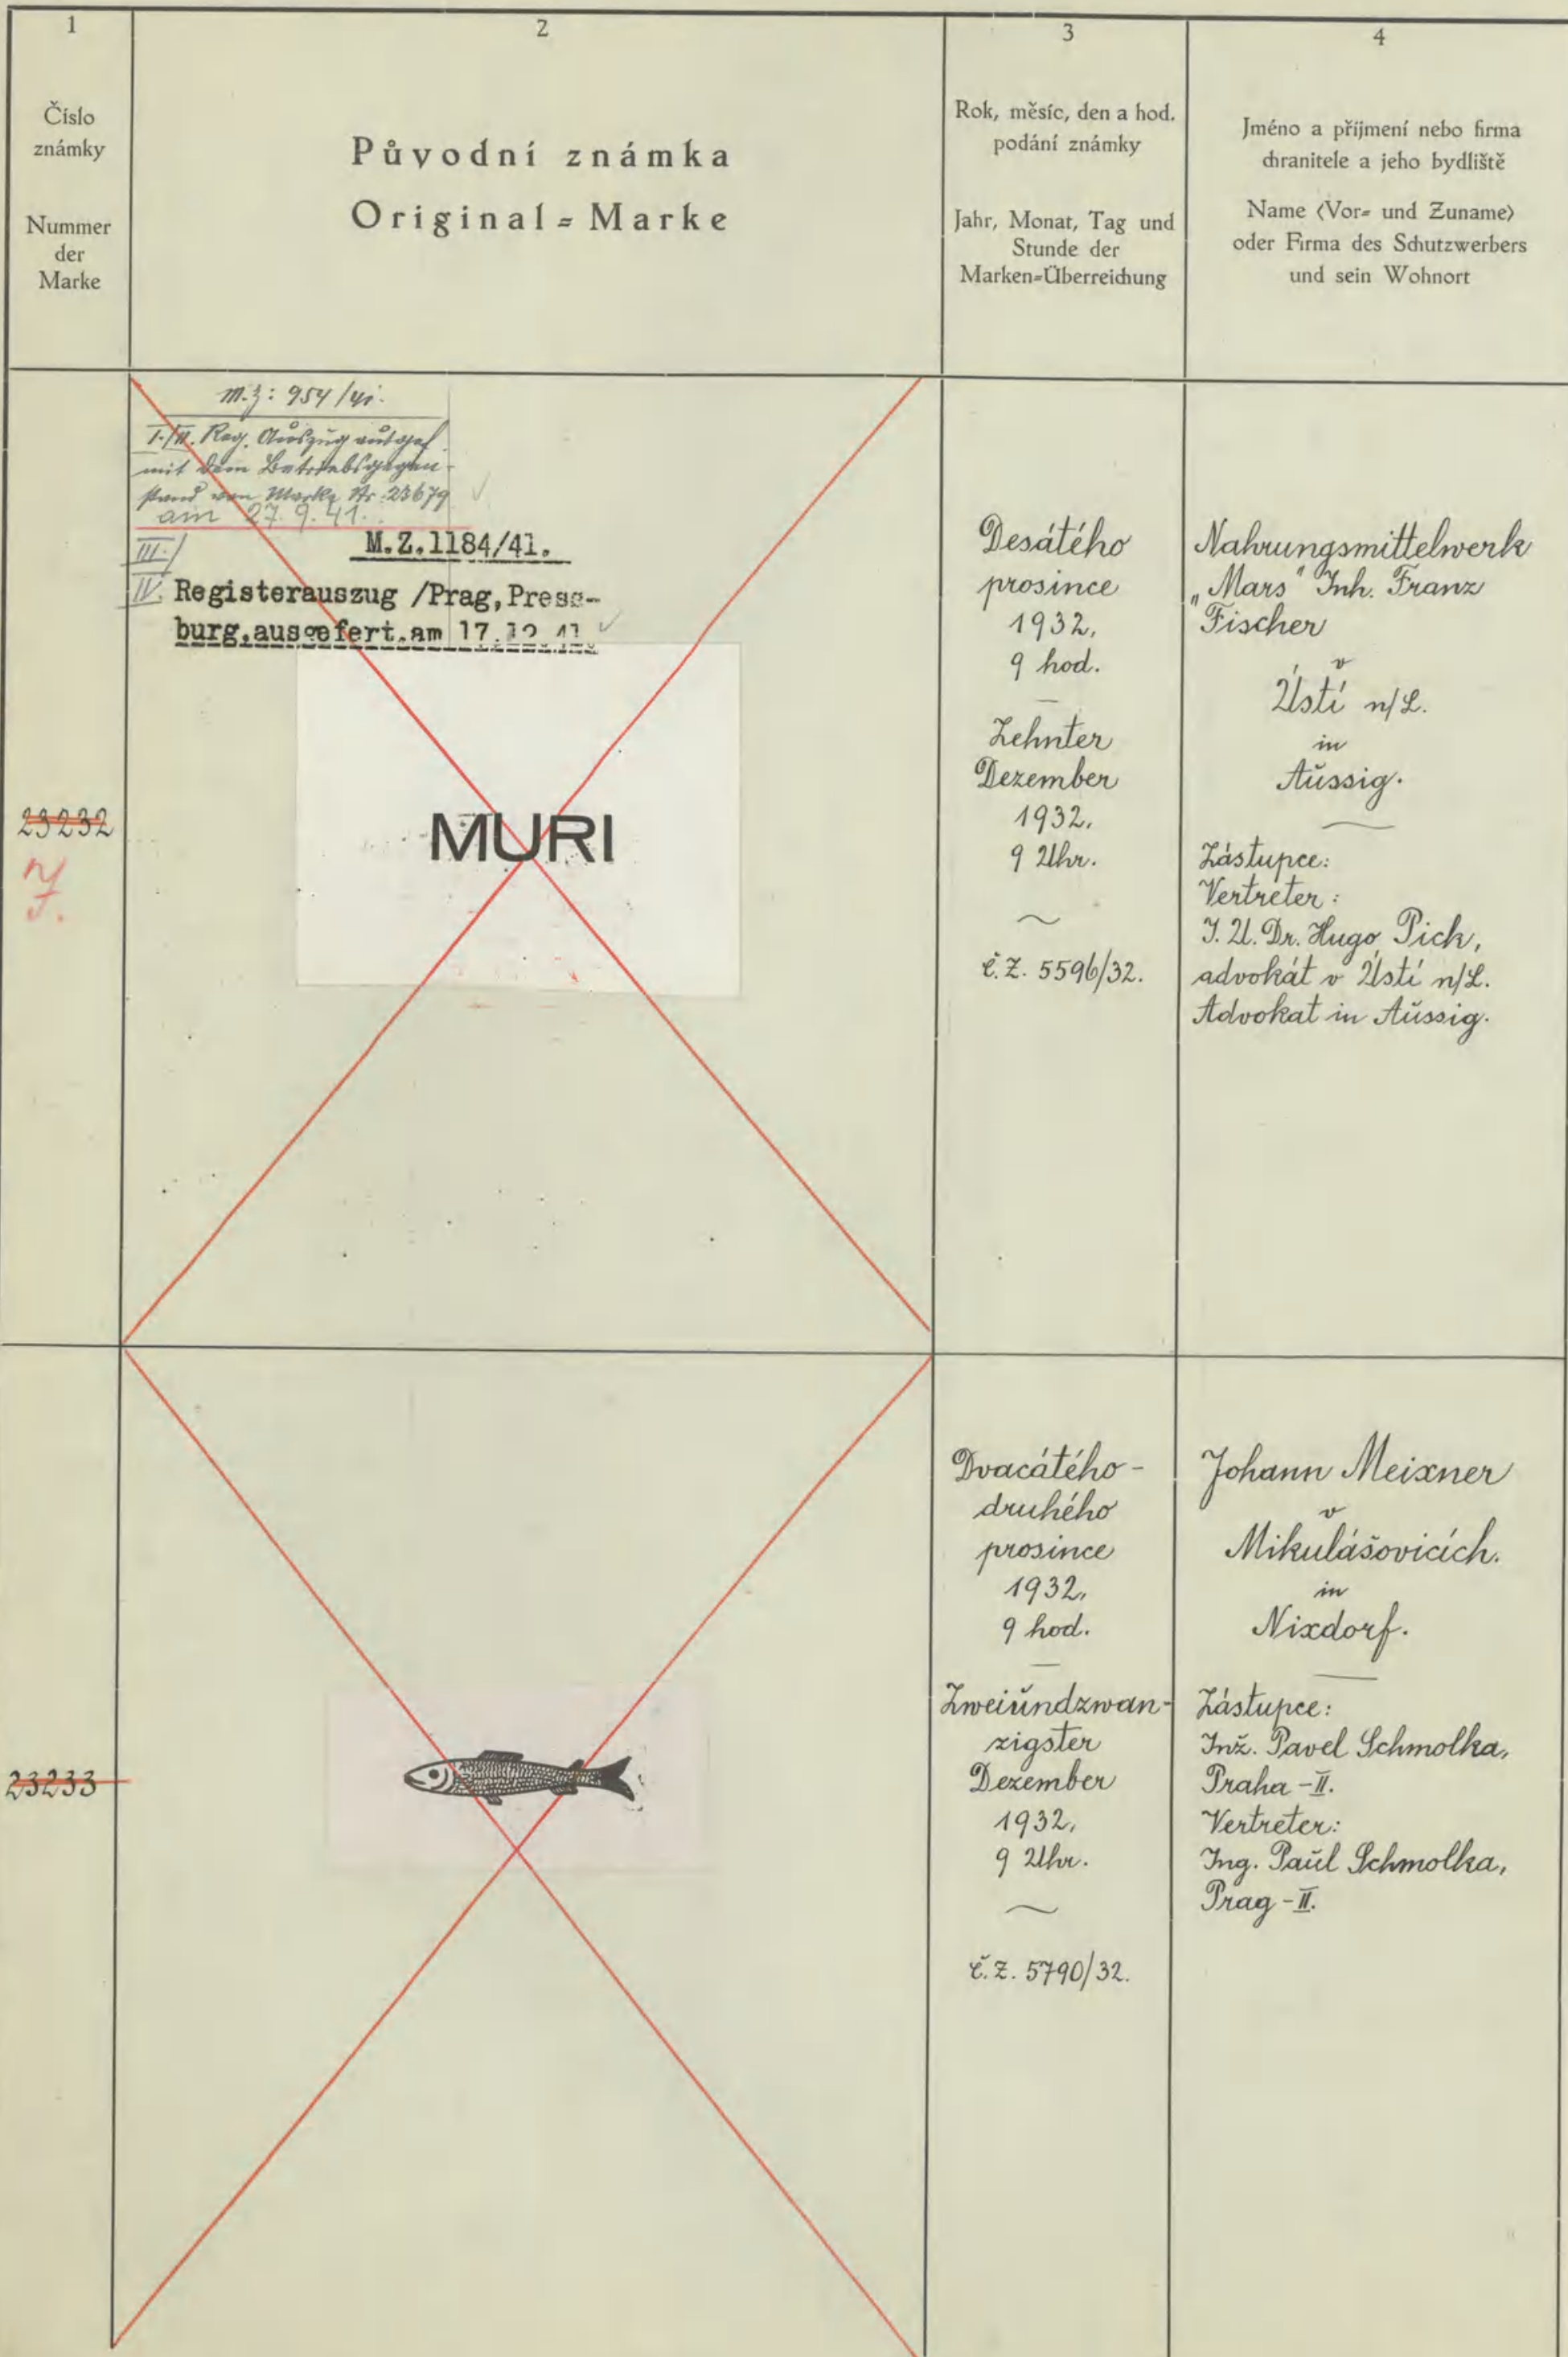 1
2
3
4
Číslo
známky
Nummer
der
Marke
Původní známka
Original=Marke
Rok, měsíc, den a hod.
podání známky
Jahr, Monat, Tag und
Stunde der
Marken=Überreichung
Jméno a příjmení nebo firma
chranitele a jeho bydliště
Name (Vor= und Zuname)
oder Firma des Schutzwerbers
und sein Wohnort
23232
M.Z: 954/41.
I./II. Reg. Auszug ausgef.
mit dem Betriebsgegen-
stand von Marke Nr. 23679
am 27.9.41.
III./ M.Z.1184/41.
IV. Registerauszug /Prag, Press-
burg.ausgefert.am 17.12.41
MURI
Desátého
prosince
1932,
9 hod.
Zehnter
Dezember
1932,
9 Uhr.
č.Z. 5596/32.
Nahrungsmittelwerk
„Mars" Inh. Franz
Fischer
v
Ústí n/L.
in
Aussig.
Zástupce:
Vertreter:
J. U. Dr. Hugo Pick,
advokát v Ústí n/L.
Advokat in Aussig.
23233
Dvacátého-
druhého
prosince
1932,
9 hod.
Zweiundzwan-
zigster
Dezember
1932,
9 Uhr.
č.Z. 5790/32.
Johann Meixner
v
Mikulášovicích.
in
Nixdorf.
Zástupce:
Inž. Pavel Schmolka,
Praha-II.
Vertreter:
Ing. Paul Schmolka,
Prag-II.